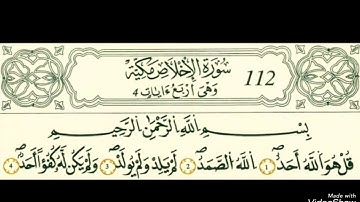 سُورَةُ الإِخْلَاصِ مَكِّيَّة 112
وَهِيَ أَرْبَعُ ءَايَاتٍ 4
بِسْمِ اللَّهِ الرَّحْمَٰنِ الرَّحِيمِ
قُلْ هُوَ اللَّهُ أَحَدٌ 1 اللَّهُ الصَّمَدُ 2 لَمْ يَلِدْ وَلَمْ يُولَدْ 3 وَلَمْ يَكُن لَّهُ كُفُوًا أَحَدٌ 4
Made with
VideoShow